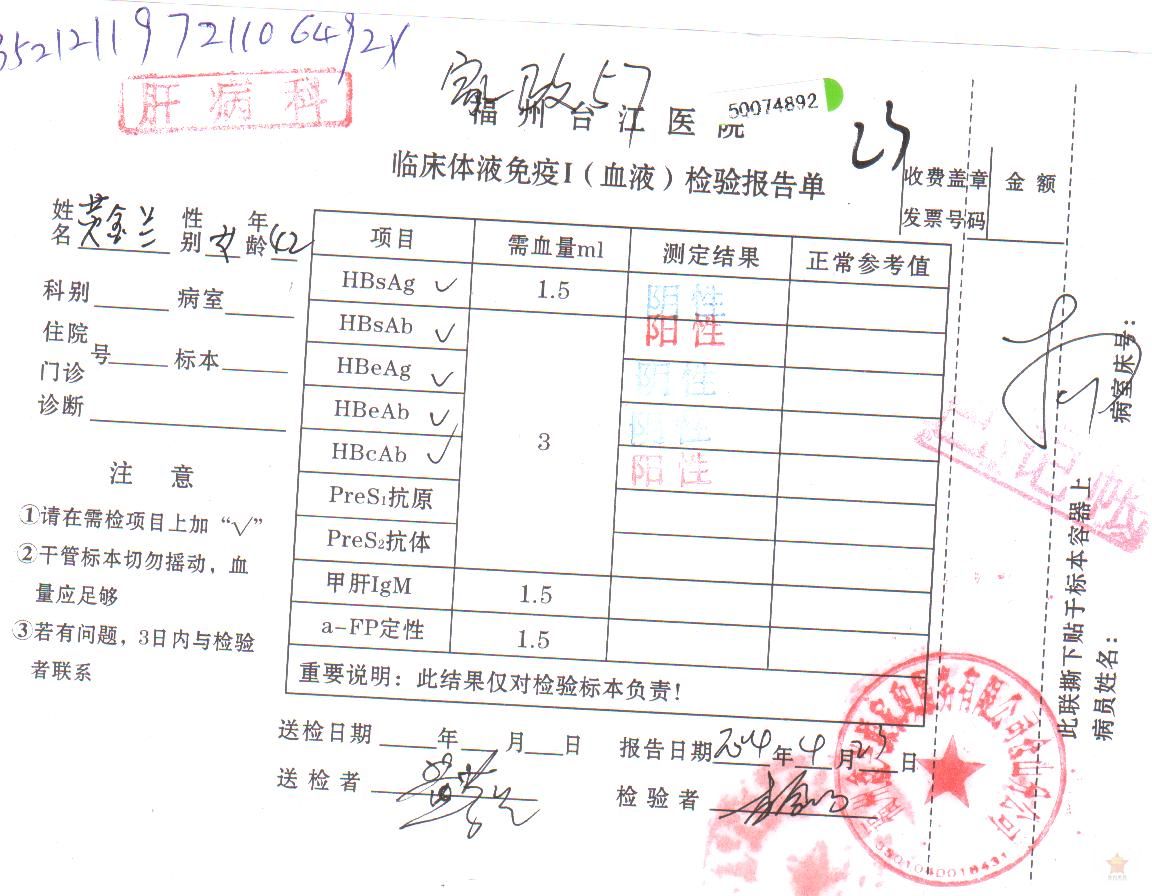 35212119721106492X
肝病科
福州台江医院
50074892
23
临床体液免疫I（血液）检验报告单
收费盖章 金额
发票号码
姓名 黄金兰 性别 女 年龄 42
科别 病室
住院
号 标本
门诊
诊断
注 意
①请在需检项目上加“√”
②干管标本切勿摇动，血
量应足够
③若有问题，3日内与检验
者联系
项目 需血量ml 测定结果 正常参考值
HBsAg √ 1.5 阴性
HBsAb √ 3 阳性
HBeAg √ 阴性
HBeAb √ 阴性
HBcAb √ 阳性
PreS₁抗原
PreS₂抗体
甲肝IgM 1.5
a-FP定性 1.5
重要说明：此结果仅对检验标本负责！
送检日期 年 月 日 报告日期 2014 年 4 月 23 日
送检者 检验者
病室床号：
此联撕下贴于标本容器上
病员姓名：
已记帐